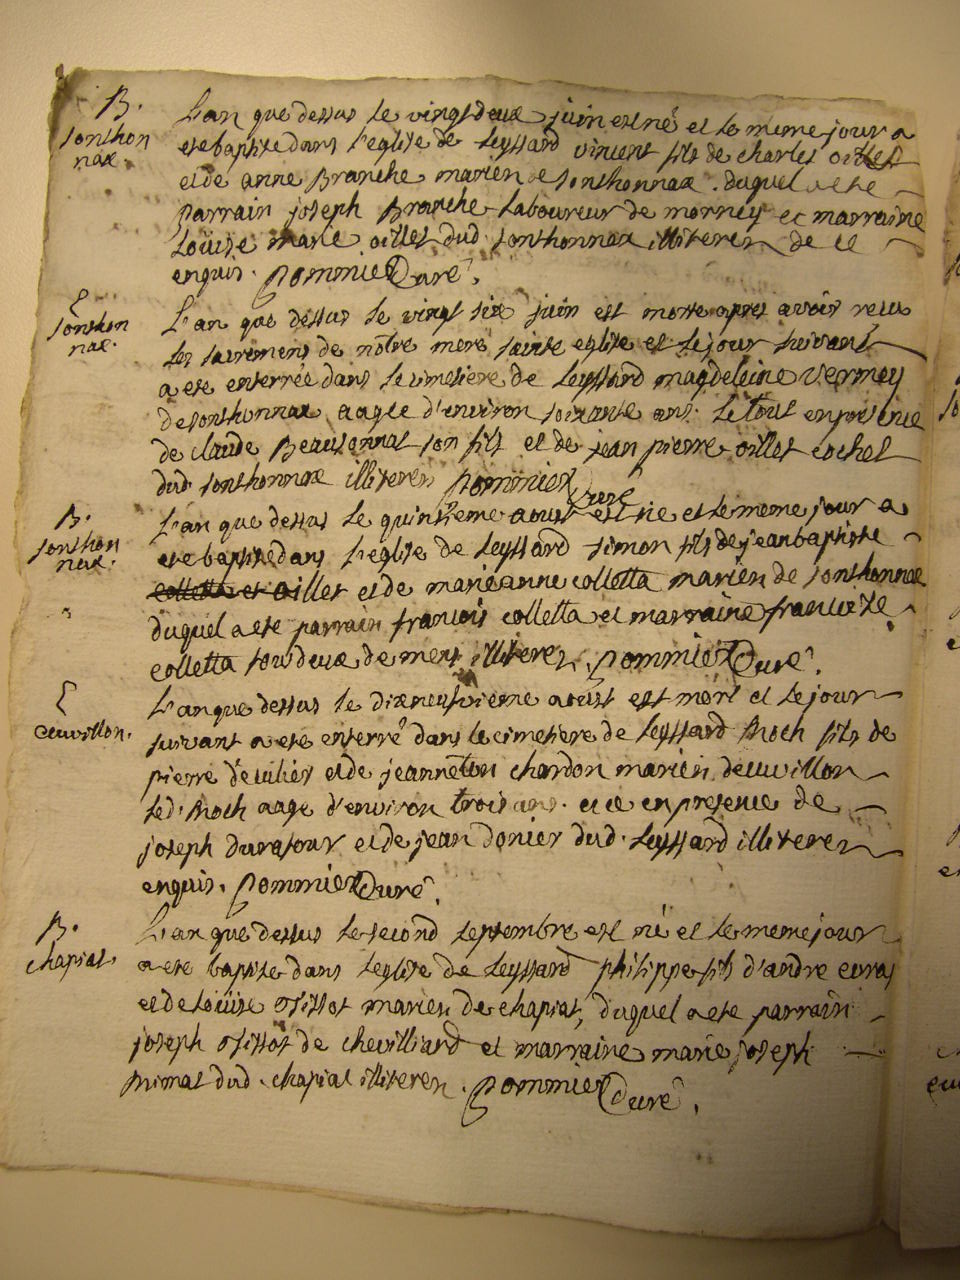 B.
Sonthon
nax.
L'an que dessus le vingt deux juin est né et le meme jour a
ete baptise dans l'eglise de Leyssard vincent fils de charles oillet
et de anne Branche mariés de Sonthonnax. duquel a ete
parrain joseph Branche Laboureur de morney et marraine
Loüise marie oillet dud. Sonthonnax illiterez de ce
enquis. Pommier Curé.
E
Sonthon
nax.
L'an que dessus le vingt six juin est morte apres avoir receu
les sacremens de notre mere sainte eglise et le jour suivant
a ete enterrée dans le cimetiere de Leyssard magdeleine vermey
de sonthonnax aagée d'environ soixante ans. Le tout en presence
de claude Beausonnat son fils et de jean pierre oillet cochet
dud. Sonthonnax illiterez Pommier Curé
B.
Sonthon
nax.
L'an que dessus le quinsieme aoust est né et le meme jour a
ete baptise dans l'eglise de Leyssard simon fils de jean baptiste
colletta et oillet et de marieanne colletta mariés de Sonthonnax
duquel a ete parrain francois colletta et marraine
colletta tous deux de illiterez. Pommier Curé.
E
ceuvillon.
L'an que dessus le dixneufvieme aoust est mort et le jour
suivant a ete enterré dans le cimetiere de Leyssard Roch fils de
pierre et de jeanneton chardon mariés de cuvillon
led. Roch aagé d'environ trois ans. et ce en presence de
joseph durafour et de jean donier dud. Leyssard illiterez
enquis. Pommier Curé.
B.
chapiat.
L'an que dessus le second septembre est né et le meme jour
a ete baptise dans l'eglise de Leyssard philippe fils d'andre
et de Loüise mariés de chapiat, duquel a ete parrain
joseph de chevilliard et marraine marie joseph
primat dud. chapiat illiterez. Pommier Curé.